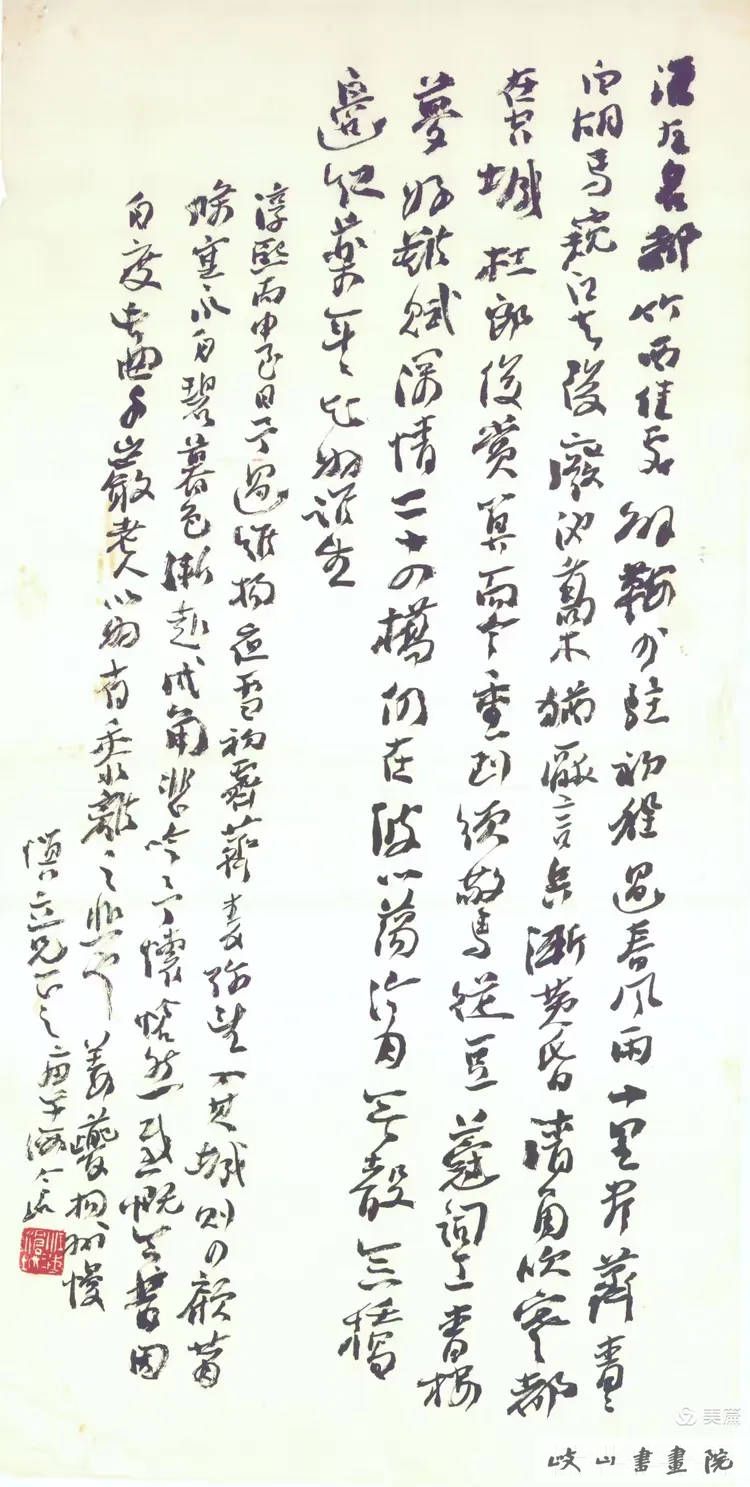 淮左名都竹西佳處解鞍少駐初程過春風兩十里尽薺青々
自胡馬窺江去後廢池喬木猶厭言兵漸黃昏清角吹寒都
在空城杜郎俊賞算而今重到須驚縱豆蔻詞工青楼
夢好難賦深情二十四橋仍在波心蕩冷月無聲念橋
邊紅藥年々知為誰生
淳熙丙申至日予過維揚夜雪初霽薺麦弥望入其城則四顧蕭
條寒水自碧暮色漸起戍角悲吟予懷愴然感慨今昔因
自度此曲千巖老人以為有黍離之悲也 姜夔揚州慢
慎立兄正之
美篇
岐山書畫院